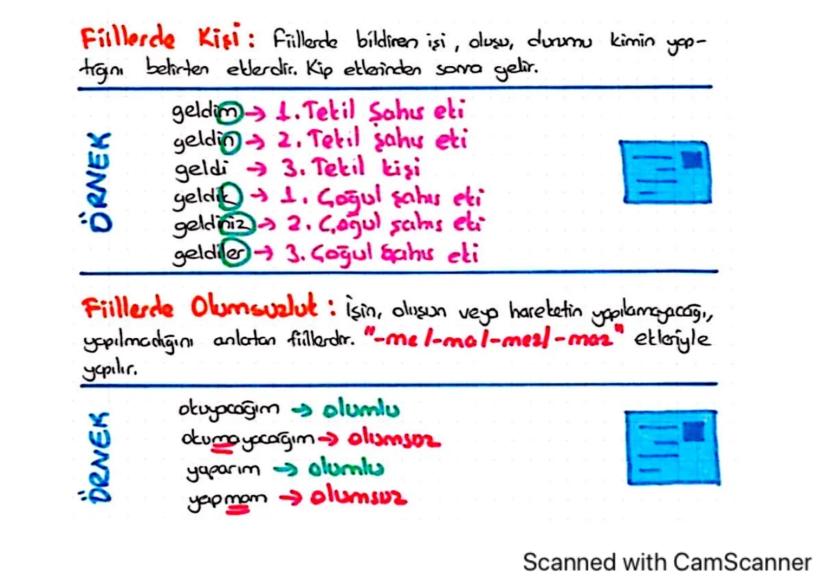 Fiillerde Kişi : Fiillerde bildiren işi, oluşu, durumu kimin yap-
tığını belirten eklerdir. Kip eklerinden sonra gelir.
ÖRNEK
geldim → 1. Tekil Şahıs eki
geldin → 2. Tekil şahıs eki
geldi → 3. Tekil kişi
geldik → 1. Çoğul şahıs eki
geldiniz → 2. Çoğul şahıs eki
geldiler → 3. Çoğul Şahıs eki
Fiillerde Olumsuzluk : İşin, oluşun veya hareketin yapılamayacağı,
yapılmadığını anlatan fiillerdir. "-me/-ma/-mez/-maz" ekleriyle
yapılır.
ÖRNEK
okuyacağım → olumlu
okumayacağım → olumsuz
yaparım → olumlu
yapmam → olumsuz
Scanned with CamScanner